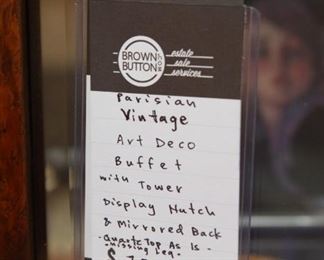 BROWN
BUTTON
.COM
estate
sale
services
Parisian
Vintage
Art Deco
Buffet
with Tower
Display Hutch
& Mirrored Back
- Quartz Top As Is -
- missing leg -
$